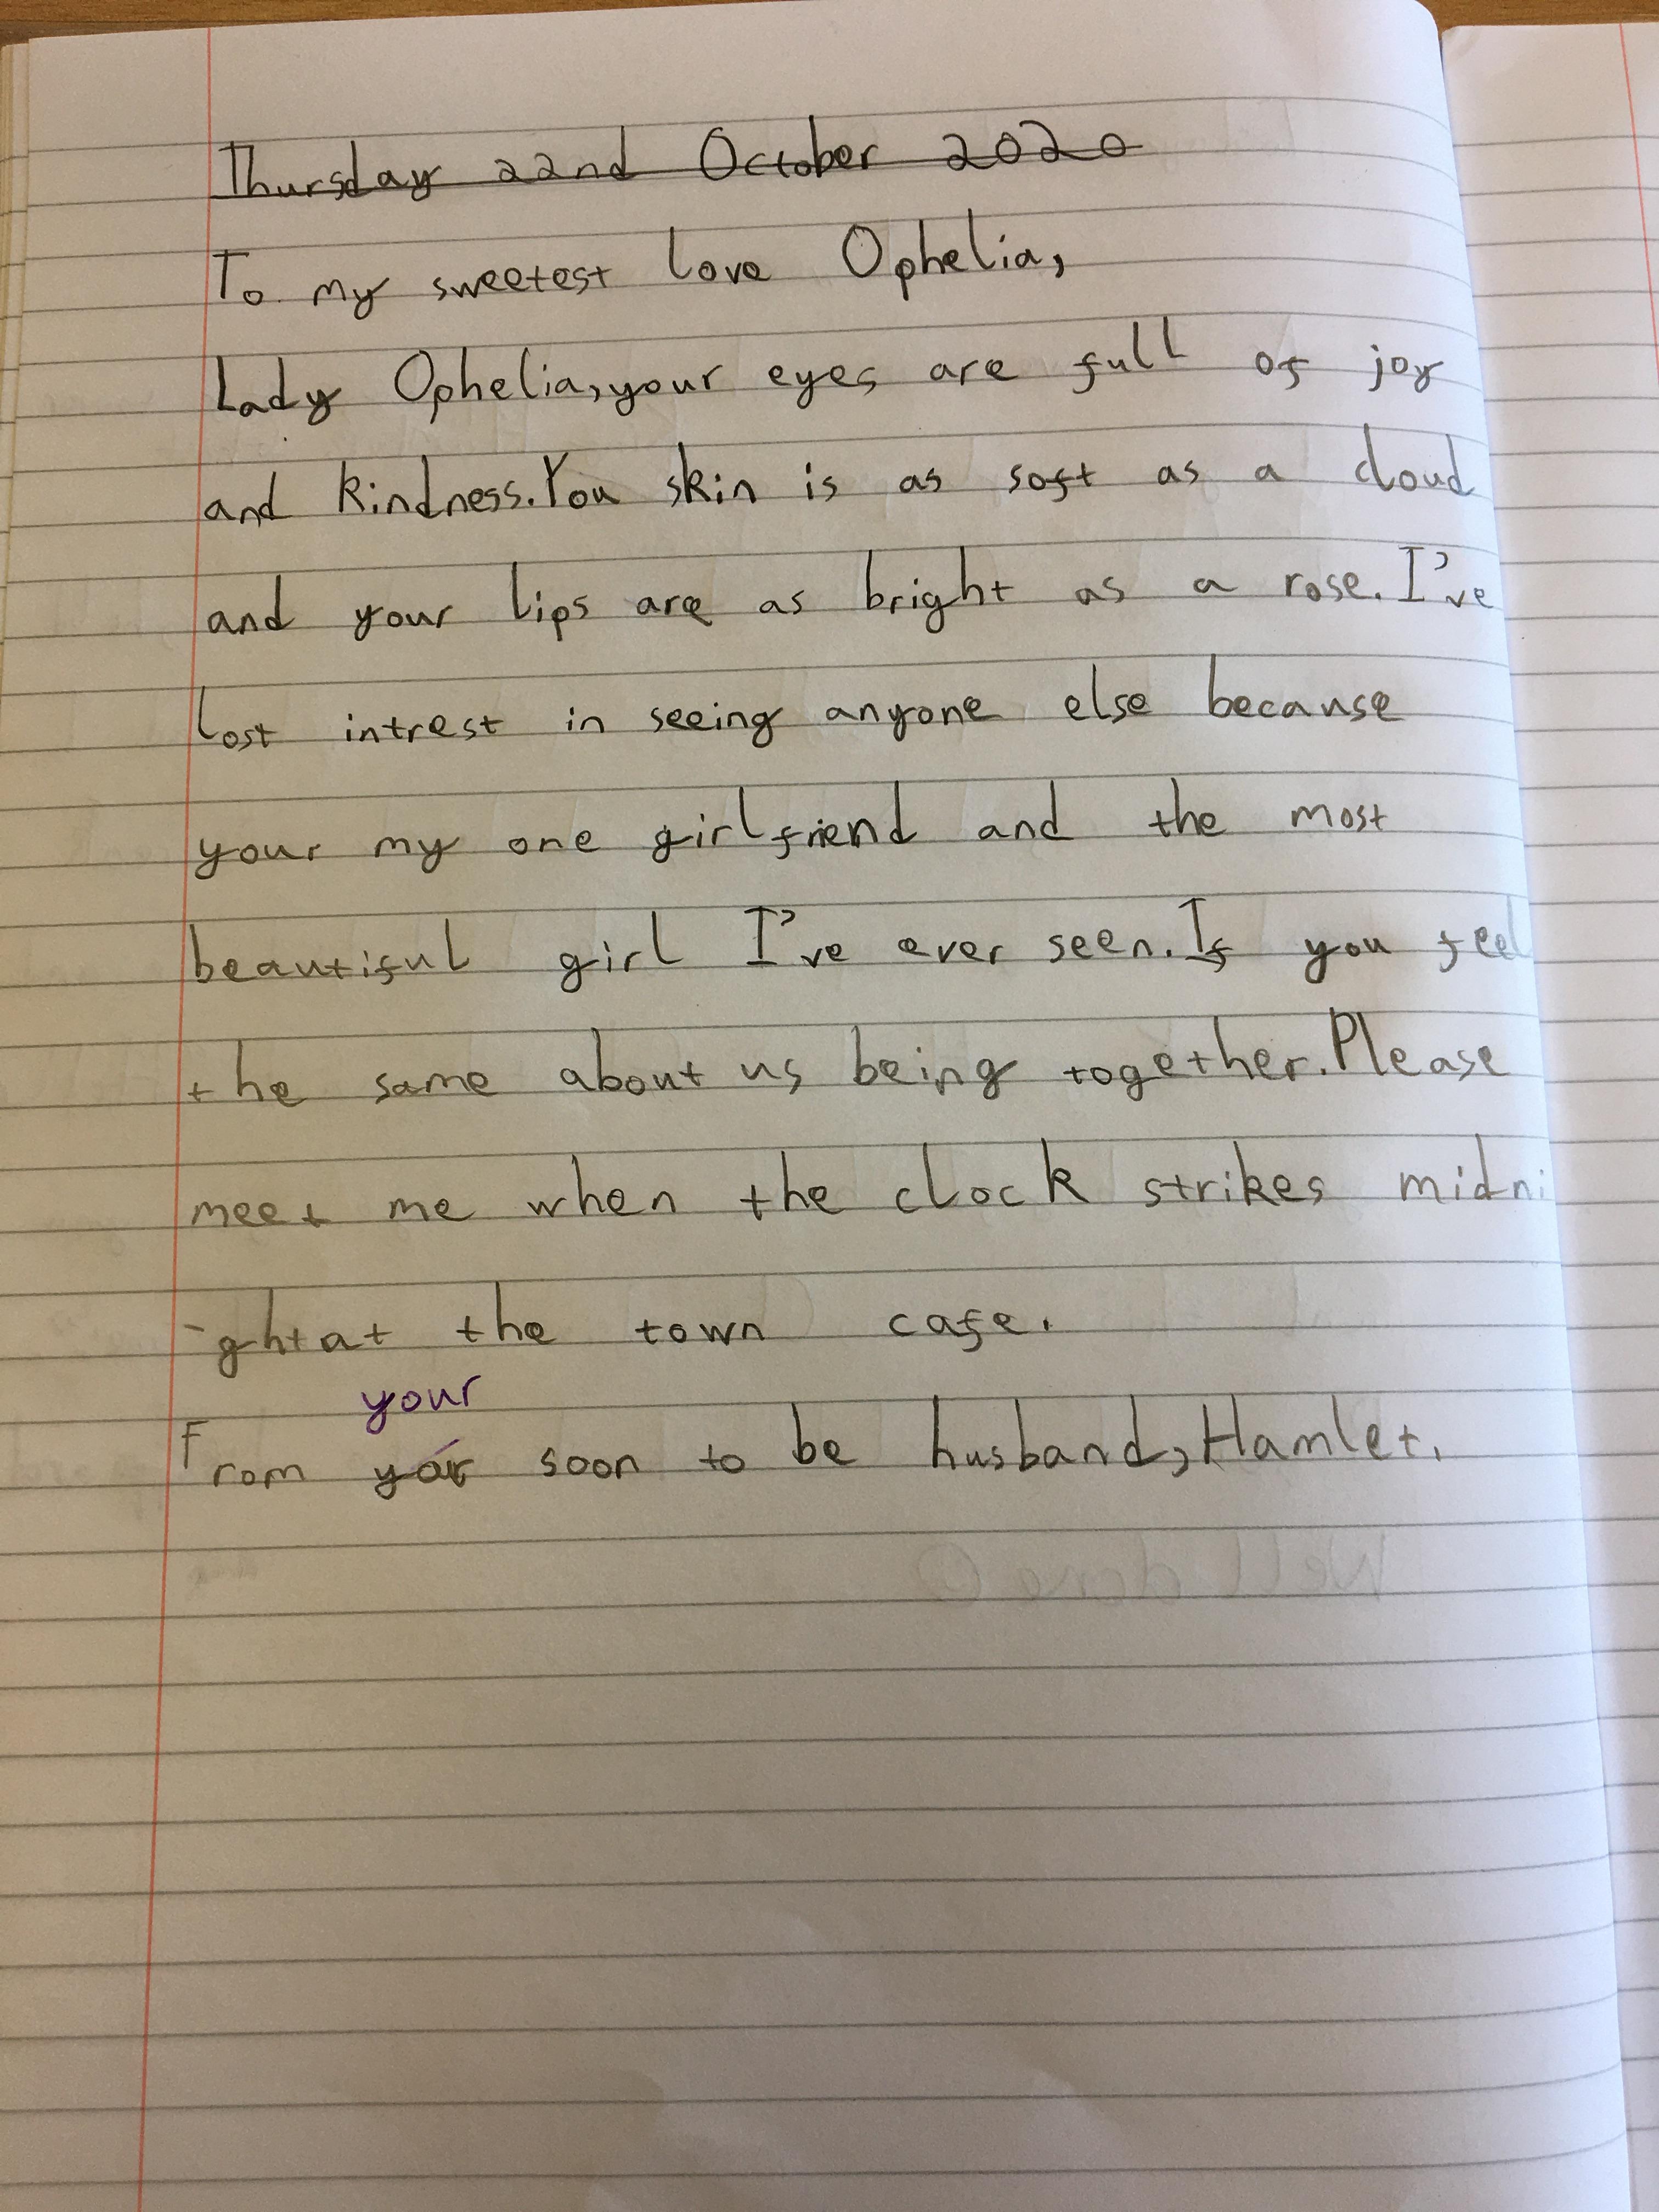 Thursday 22nd October 2020
To my sweetest love Ophelia,
Lady Ophelia, your eyes are full of joy
and kindness. You skin is as soft as a cloud
and your lips are as bright as a rose. I've
lost intrest in seeing anyone else because
your my one girlfriend and the most
beautiful girl I've ever seen. If you feel
the same about us being together. Please
meet me when the clock strikes midni
-ght at the town cafe.
your
From yor soon to be husband, Hamlet.
Well done